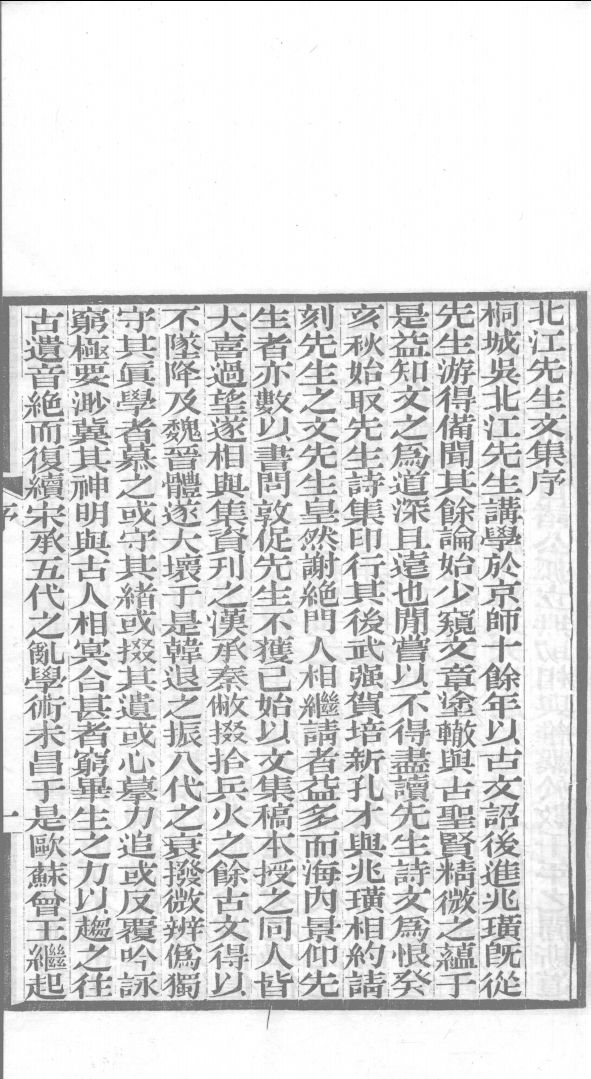 北江先生文集序
桐城吳北江先生講學於京師十餘年以古文詔後進兆璜既從
先生游得備聞其餘論始少窺文章塗轍與古聖賢精微之蘊于
是益知文之爲道深且遠也閒嘗以不得盡讀先生詩文爲恨癸
亥秋始取先生詩集印行其後武强賀培新孔才與兆璜相約請
刻先生之文先生皇然謝絕門人相繼請者益多而海内景仰先
生者亦數以書問敦促先生不獲已始以文集稿本授之同人皆
大喜過望遂相與集資刊之漢承秦敝掇拾兵火之餘古文得以
不墜降及魏晉體遂大壞于是韓退之振八代之衰撥微辨僞獨
守其眞學者慕之或守其緒或掇其遺或心摹力追或反覆吟詠
窮極要渺冀其神明與古人相冥合甚者窮畢生之力以趨之往
古遺音絕而復續宋承五代之亂學術未昌于是歐蘇曾王繼起
序
一